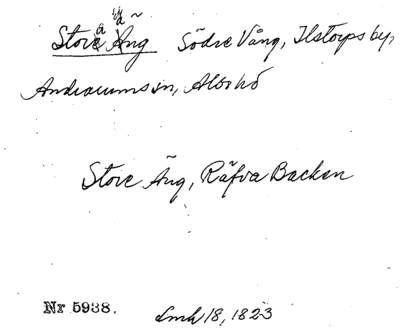 Store Äng Södre Vång, Ilstorps by,
Andrarums sn, Albo hd
Store Äng, Räfva Backen
Nr 5938. Lmh 18, 1823